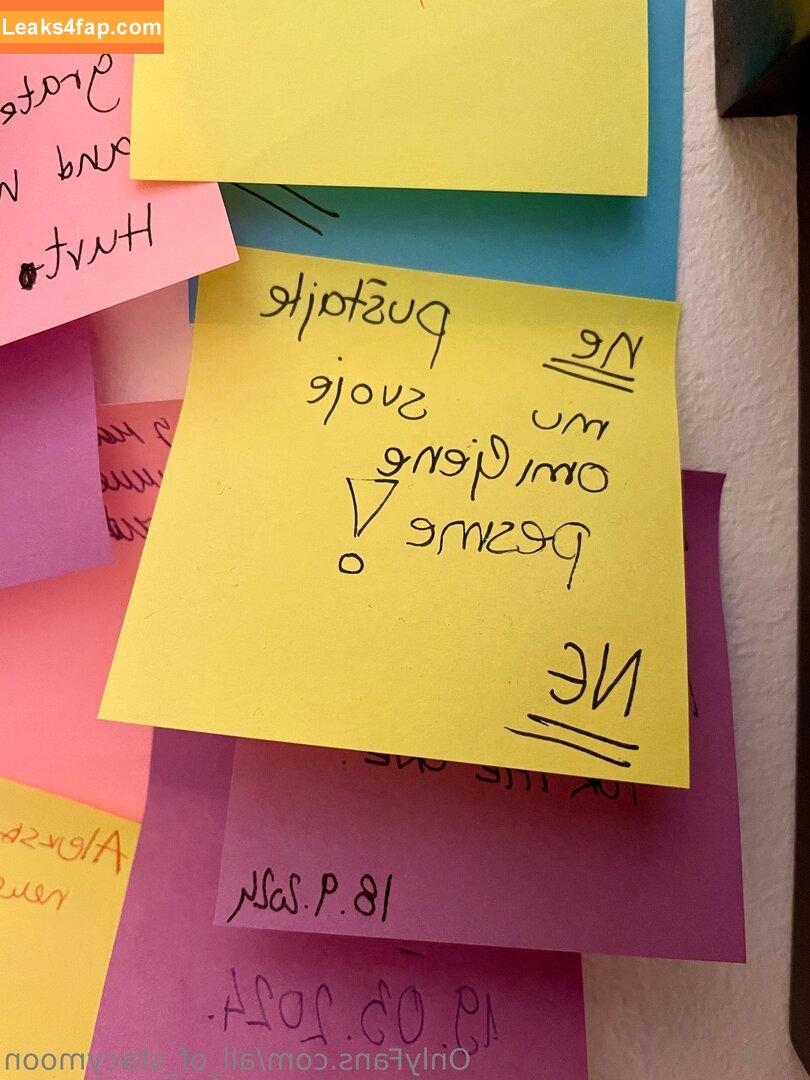 Leaks4fap.com
grate
and
Hurt.
Ne pustajte
mu svoje
omiljene
pesme !
NE
FOR THE ONE.
18.9.2024
19.03.2024.
OnlyFans.com/all_of_stacymoon